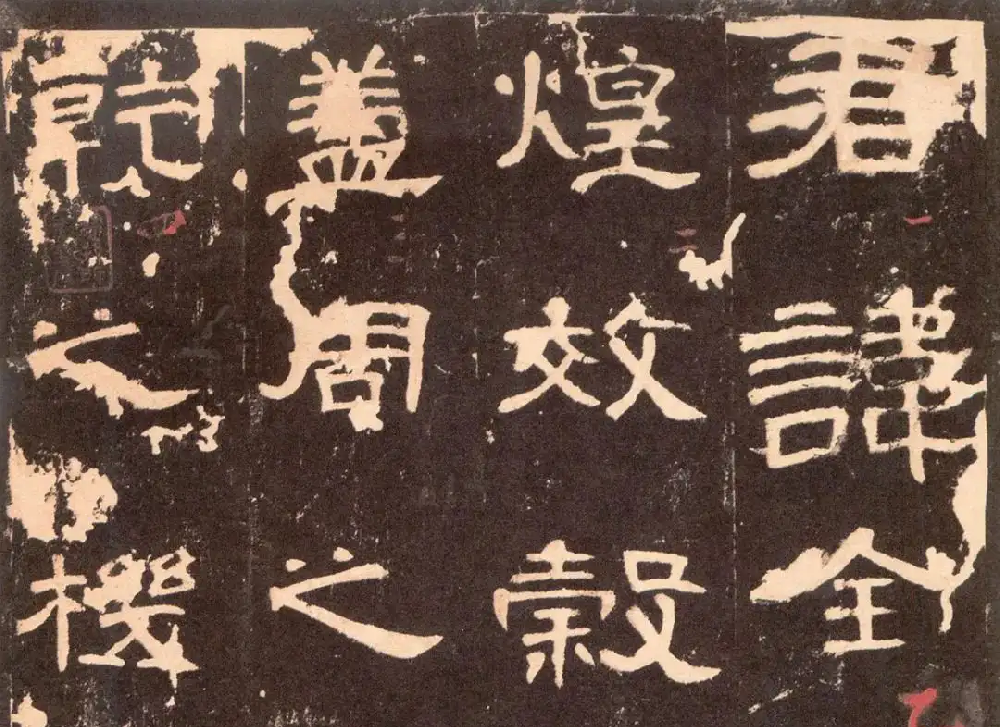 君諱全
煌效穀
蓋周之
乾之機